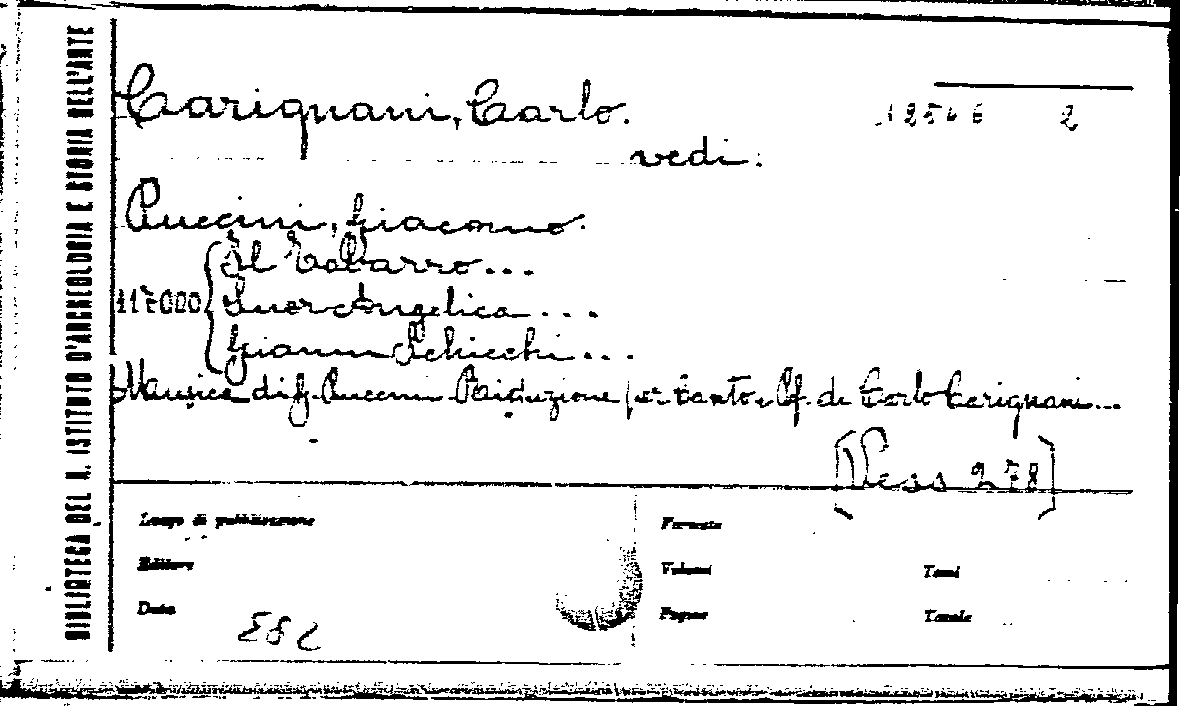 BIBLIOTECA DEL R. ISTITUTO D'ARCHEOLOGIA E STORIA DELL'ARTE
Carignani, Carlo.
12546 2
vedi:
Puccini, Giacomo.
Il Tabarro...
117000 { Suor Angelica...
Gianni Schicchi...
Musica di G. Puccini Riduzione per Canto e Pf. di Carlo Carignani...
[Vess 278]
Luogo di pubblicazione
Formato
Editore
Volumi Tomi
Data
Pagine Tavole